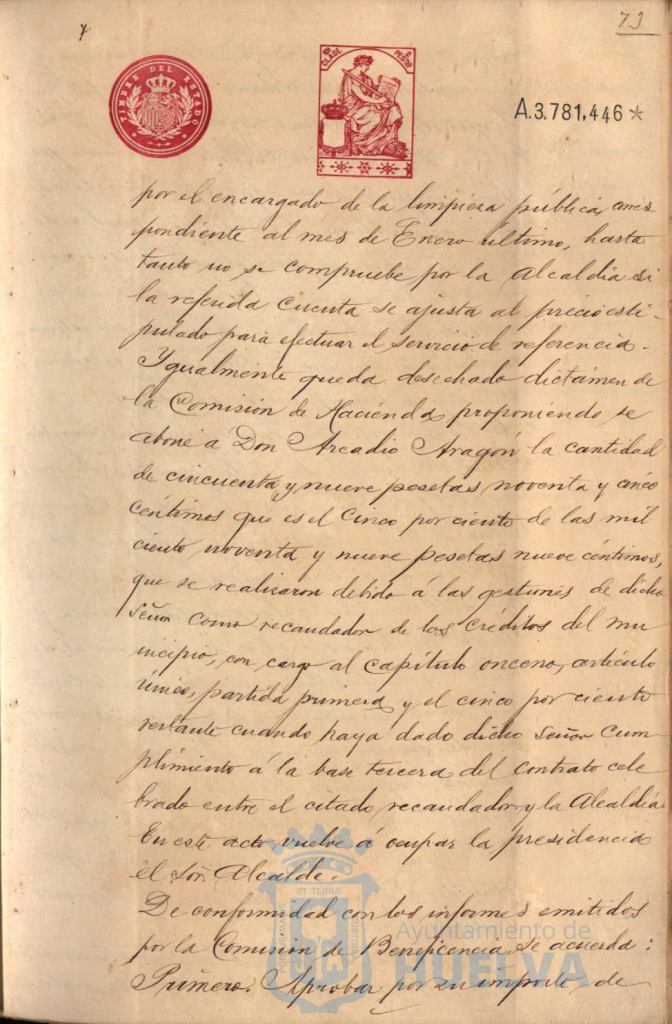 7
73
TIMBRE DEL ESTADO
CLASE 8ª
PESTAS 2
A.3.781,446*
por el encargado de la limpieza pública, corres
pondiente al mes de Enero último, hasta
tanto no se compruebe por la Alcaldía si
la referida cuenta se ajusta al precio esti-
pulado para efectuar el servicio de referencia.
Ygualmente queda desechado dictámen de
la Comisión de Hacienda proponiendo se
abone á Don Arcadio Aragón la cantidad
de cincuenta y nueve pesetas noventa y cinco
céntimos que es el cinco por ciento de las mil
ciento noventa y nueve pesetas nueve céntimos,
que se realizaron debido á las gestiones de dicho
Señor como recaudador de los créditos del mu
nicipio, con cargo al capítulo onceno, artículo
único, partida primera, y el cinco por ciento
restante cuando haya dado dicho Señor cum-
plimiento á la base tercera del contrato cele
brado entre el citado recaudador y la Alcaldía.
En este acto vuelve á ocupar la presidencia
el Sor. Alcalde.
De conformidad con los informes emitidos
por la Comisión de Beneficencia, se acuerda:
Primero. Aprobar por su importe, de
ET TERRÆ
Ayuntamiento de
HUELVA